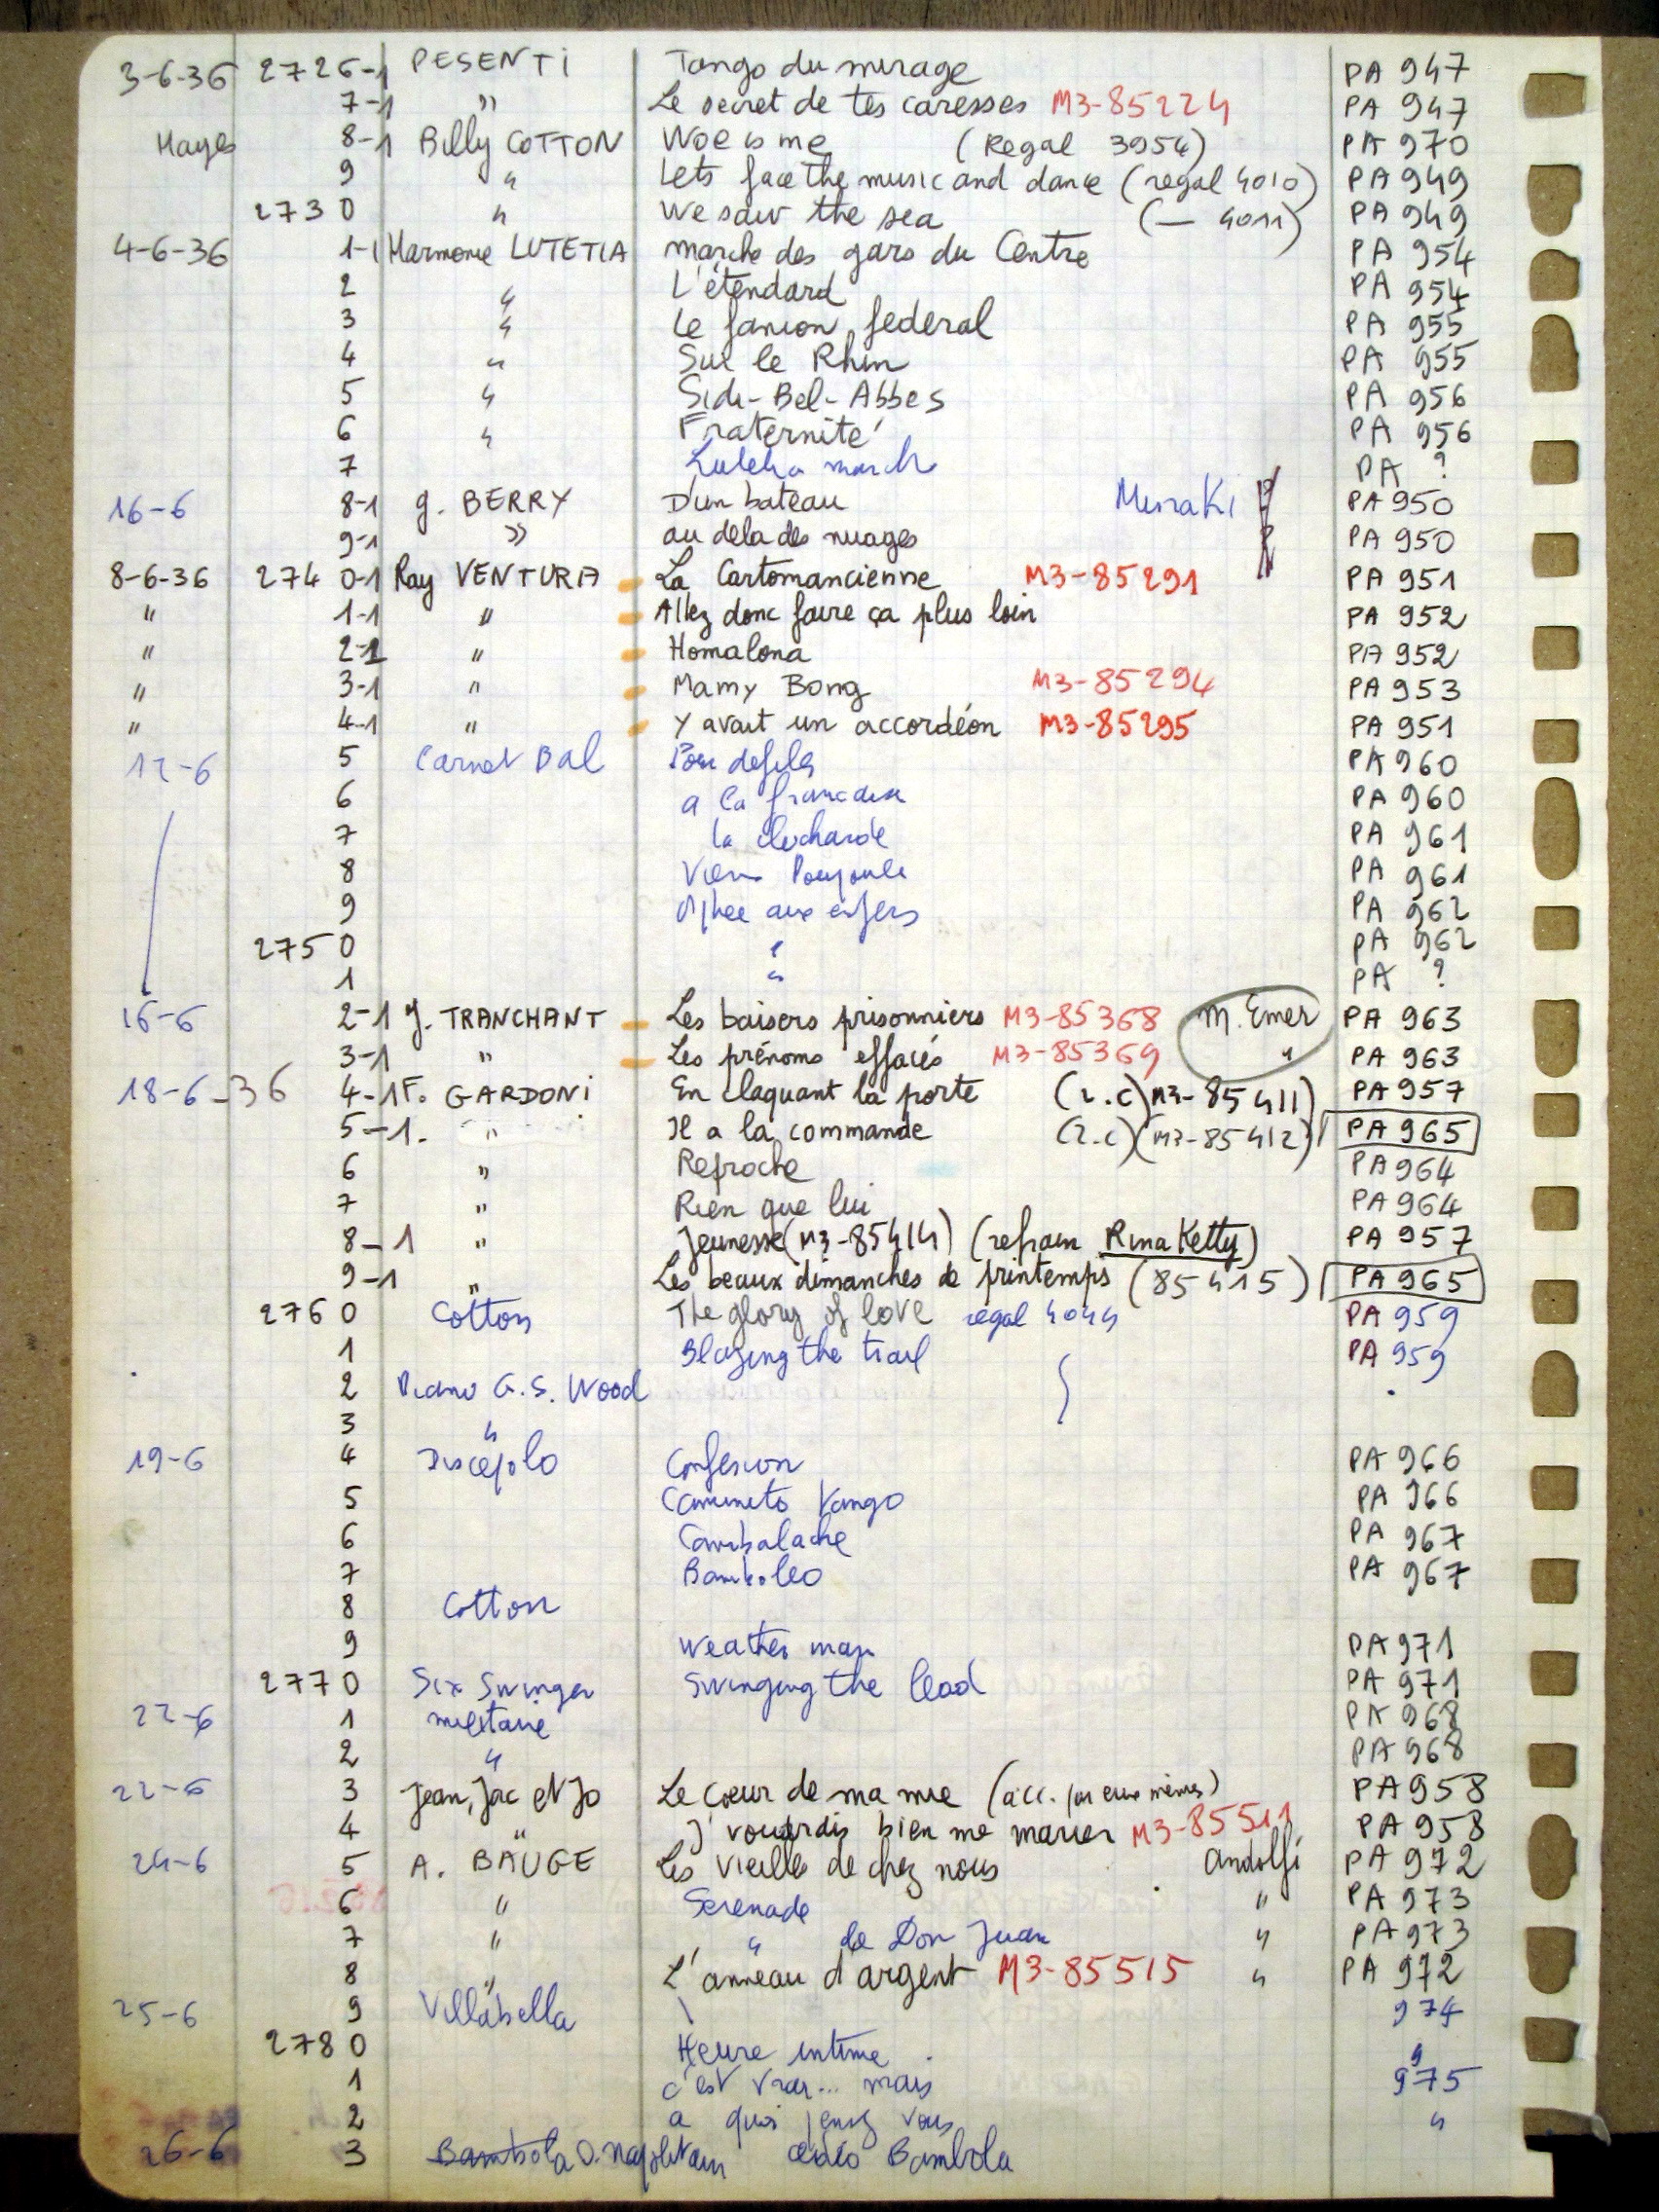 3-6-36 2726-1 PESENTI Tango du mirage PA 947
7-1 " Le secret de tes caresses M3-85224 PA 947
Hayes 8-1 Billy COTTON Woe is me (Regal 3954) PA 970
9 " Lets face the music and dance (regal 4010) PA 949
2730 " We saw the sea (— 4011) PA 949
4-6-36 1-1 Harmonie LUTETIA marche des gars du Centre PA 954
2 " L'étendard PA 954
3 " Le fanion federal PA 955
4 " Sur le Rhin PA 955
5 " Sidi-Bel-Abbes PA 956
6 " Fraternité PA 956
7 Lutetia march PA ?
16-6 8-1 g. BERRY D'un bateau Muraki PA 950
9-1 " au dela des nuages PA 950
8-6-36 2740-1 Ray VENTURA La Cartomancienne M3-85291 PA 951
" 1-1 " Allez donc faire ça plus loin PA 952
" 2-1 " Homalona PA 952
" 3-1 " Mamy Bong M3-85294 PA 953
" 4-1 " Y avait un accordéon M3-85295 PA 951
12-6 5 Carnet Bal PA 960
6 a la PA 960
7 la clocharde PA 961
8 Viens Poupoule PA 961
9 Orphee aux enfers PA 962
2750 " PA 962
1 " PA ?
16-6 2-1 J. TRANCHANT Les baisers prisonniers M3-85368 M. Emer PA 963
3-1 " Les prénoms effacés M3-85369 " PA 963
18-6-36 4-1 F. GARDONI En claquant la porte (r.c) M3-85411) PA 957
5-1. " Il a la commande (r.c) (M3-85412) PA 965
6 " Reproche PA 964
7 " Rien que lui PA 964
8-1 " Jeunesse (M3-85414) (refrain Rina Ketty) PA 957
9-1 " Les beaux dimanches de printemps (85415) PA 965
2760 Cotton The glory of love regal 4044 PA 959
1 Blazing the trail PA 959
2 Piano G.S. Wood
3 "
19-6 4 Discepolo Confesion PA 966
5 Caminito Tango PA 966
6 Cambalache PA 967
7 Bamboleo PA 967
8 Cotton
9 Weather man PA 971
2770 Six Swinger Swinging the lead PA 971
22-6 1 militaire PA 968
2 " PA 968
22-6 3 Jean, Jac et Jo Le coeur de ma mie (acc. par eux mêmes) PA 958
4 " J'voudrais bien me marier M3-85511 PA 958
24-6 5 A. BAUGE Les vieilles de chez nous Andolfi PA 972
6 " Serenade " PA 973
7 " " de Don Juan " PA 973
8 " L'anneau d'argent M3-85515 " PA 972
25-6 9 Villabella 974
2780 Heure intime
1 c'est vrai... mais 975
2 a qui pensez vous "
26-6 3 Bambola O. napolitain adio Bambola